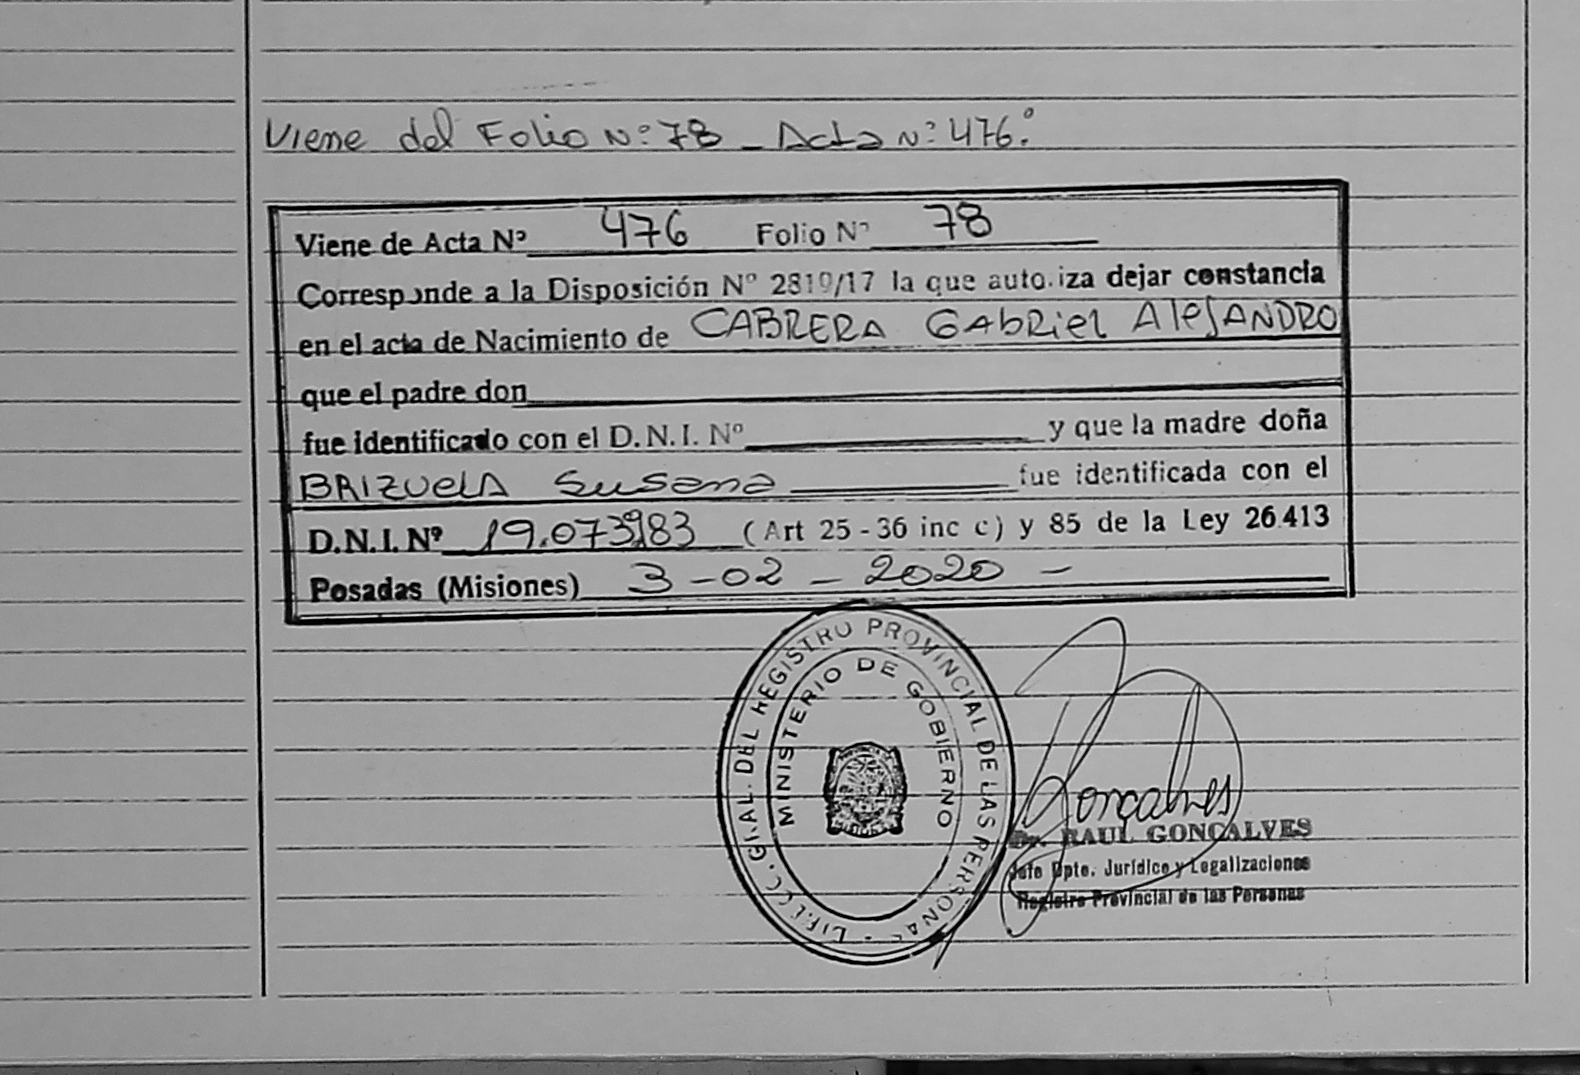 Viene del Folio N°: 78 - Acta N°: 476:
Viene de Acta N° 476 Folio N° 78
Corresponde a la Disposición N° 2819/17 la que autoriza dejar constancia
en el acta de Nacimiento de CABRERA GAbRiel AleJANDRO
que el padre don
fue identificado con el D.N.I. N° y que la madre doña
BRIZUELA Susana fue identificada con el
D.N.I. N° 19.073.983 (Art 25 - 36 inc c) y 85 de la Ley 26.413
Posadas (Misiones) 3 - 02 - 2020 -
DIRECC. GRAL. DEL REGISTRO PROVINCIAL DE LAS PERSONAS
MINISTERIO DE GOBIERNO
Goncalves
Dr. RAUL GONCALVES
Jefe Dpto. Jurídico y Legalizaciones
Registro Provincial de las Personas